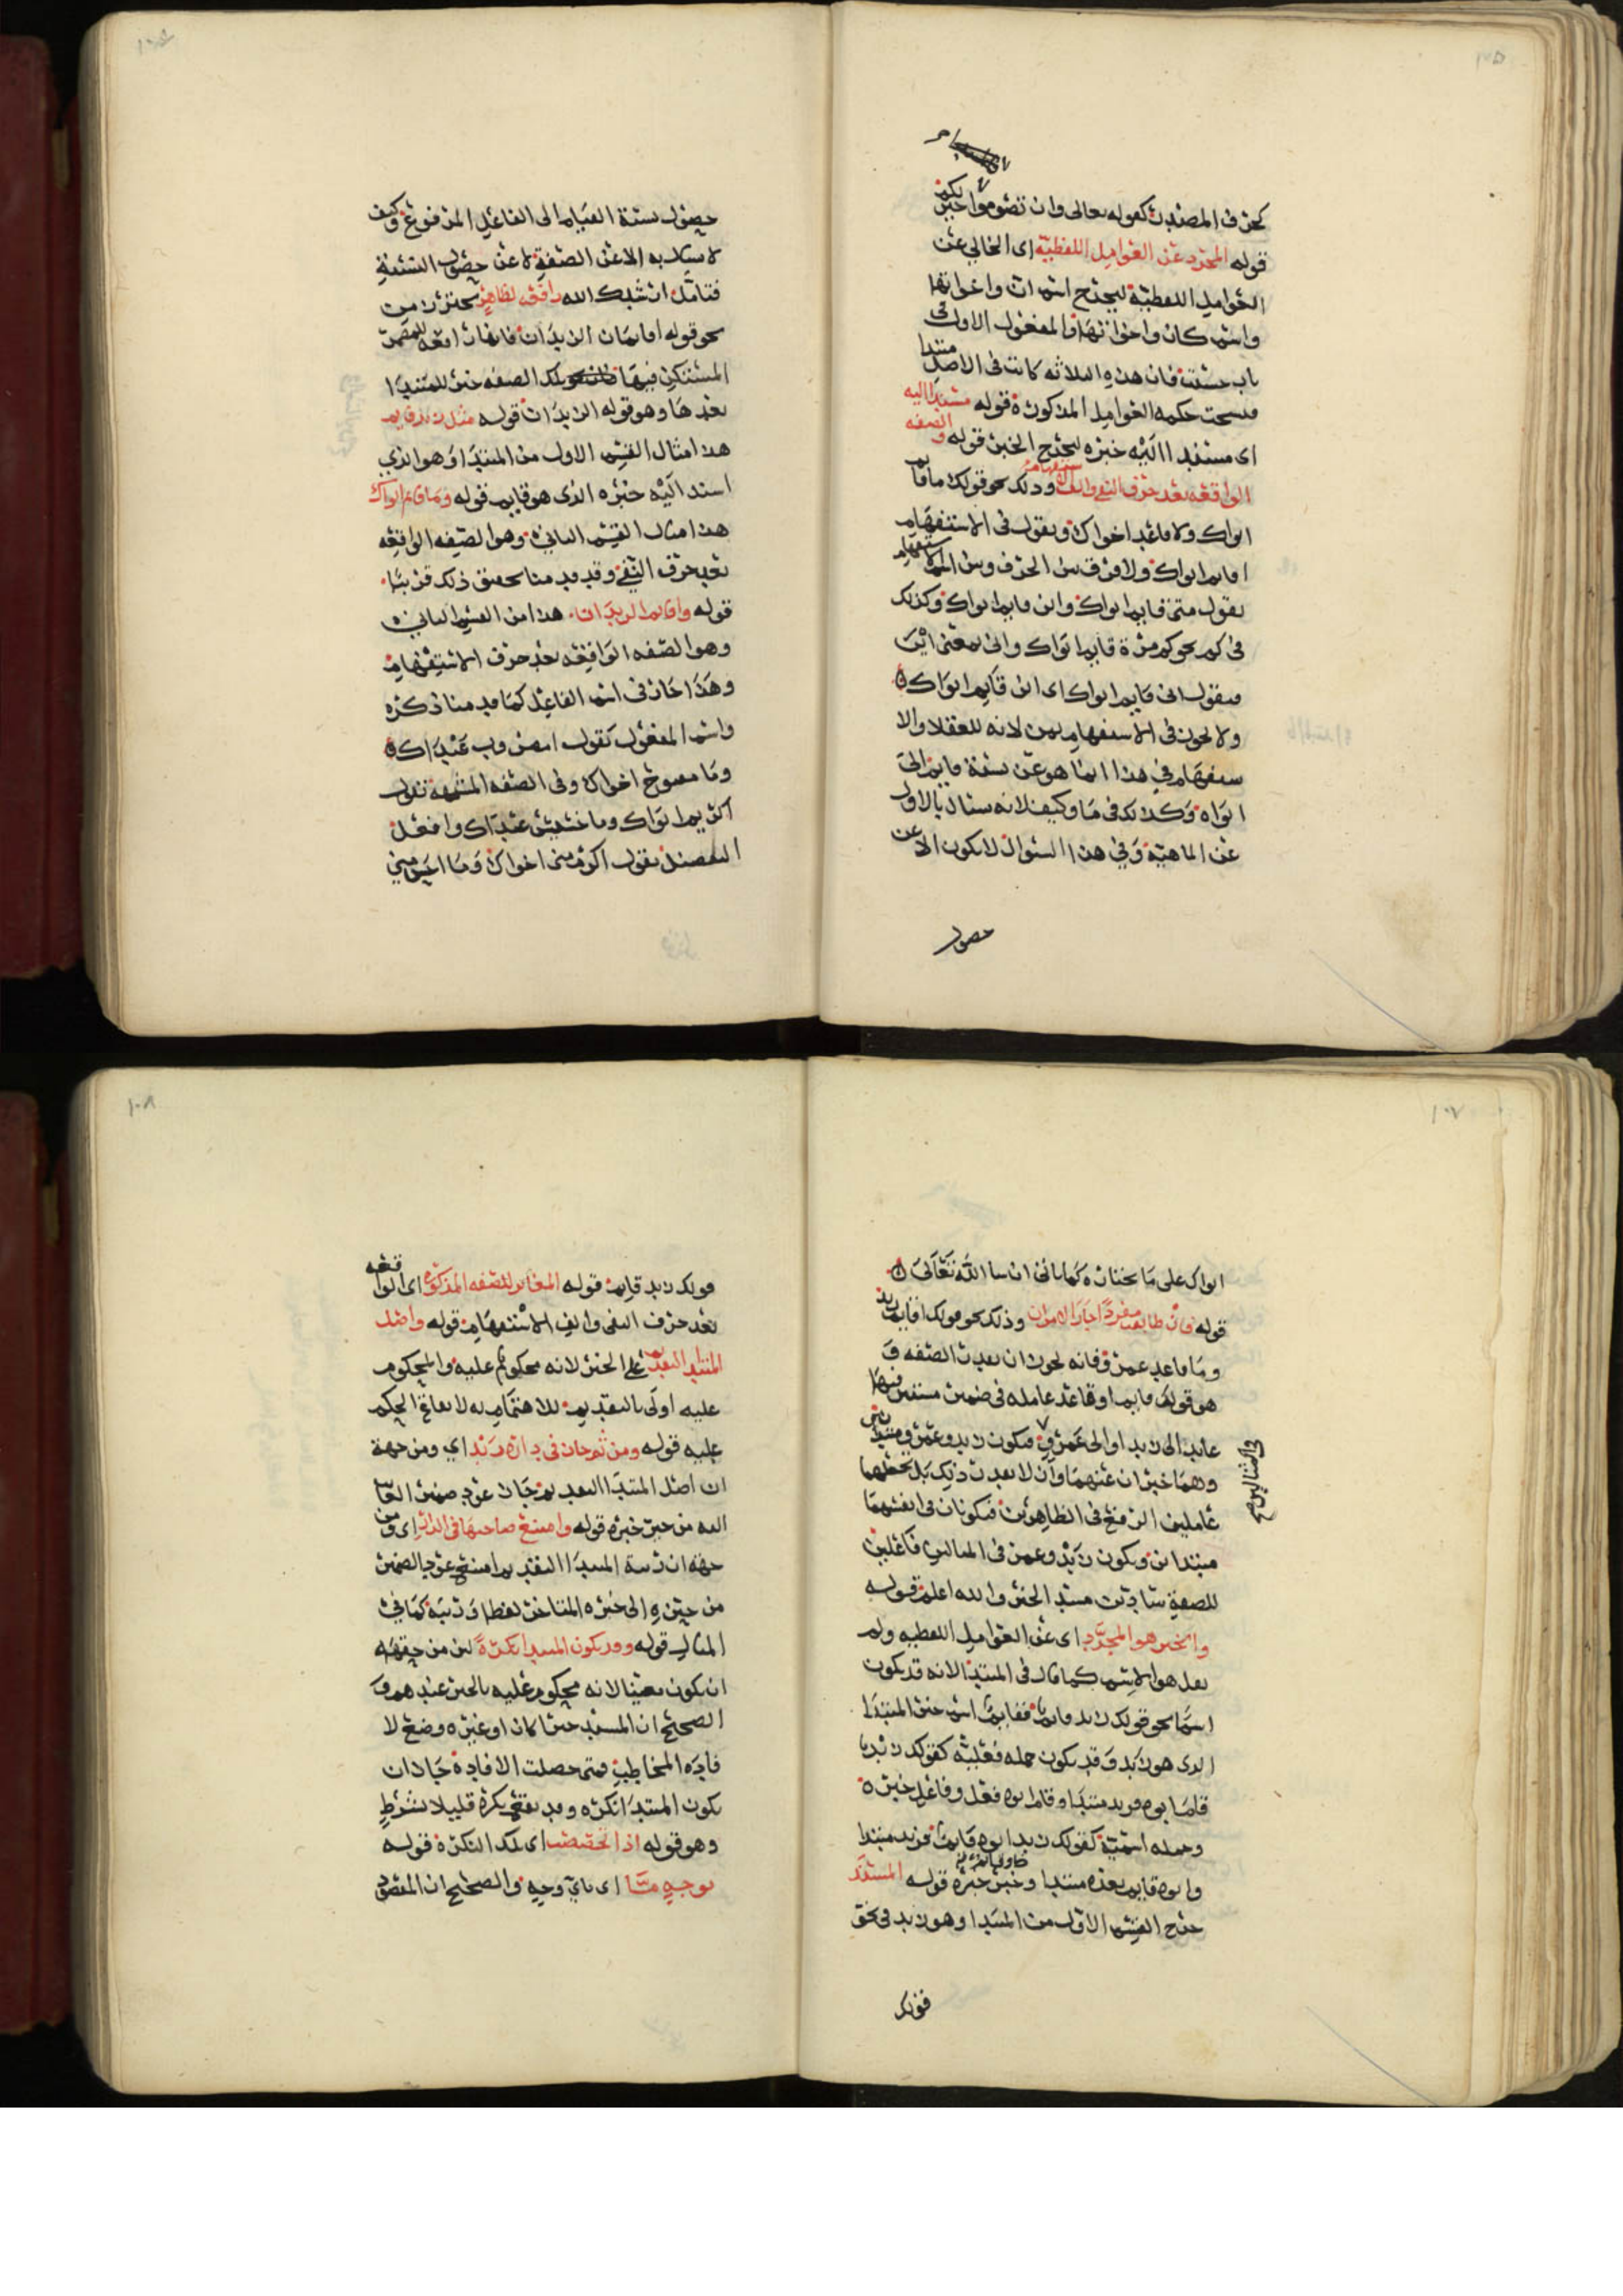 ١٠٥
كحرف المصدر كقوله تعالى وان تصوموا خير لكم
قوله المجرد عن العوامل اللفظية اى الخالي عن
العوامل اللفظية ليخرج اسم ان واخواتها
واسم كان واخواتها والمفعول الاول في
باب حسبت فان هذه الثلاثة كانت في الاصل مبتدا
فنسخت حكمه العوامل المذكورة قوله مسندا اليه
اى مسندا اليه خبره ليخرج الخبر قوله والصفه
الواقعه بعد حرف النفي والف الاستفهام وذلك نحو قولك ما قايم
ابواك ولا قاعد اخواك ويقول في الاستفهام
اقايم ابواك ولا فرق بين الحرف وبين استفهام
يقول متى قايم ابواك واين قايم ابواك وكذلك
في كم نحو كم مرة قايم ابواك وانى بمعنى اين
فيقول انى قايم ابواك اى اين قايم ابواك
ولا يجوز في الاستفهام بمن لانه للعقلا والا
ستفهام في هذا انما هو عن نسبة قايم الى
ابواه وكذلك في ما وكيف لانه يسال بالاول
عن الماهية وفي هذا السوال لا يكون الا عن
حصول
حصول نسبة القيام الى الفاعل المرفوع وكيف
لا يسال به الا عن الصفة لا عن حصول النسبة
فتامل ارشدك الله رافعة لظاهر يحترز من
نحو قوله اقايمان الزيدان فانها رافعه للمضمر
المستكن فيها تلك الصفه خبر للمبتدا
بعدها وهو قوله الزيدان قوله مثل زيد قايم
هذا مثال القسم الاول من المبتدا وهو الذي
اسند اليه خبره الذى هو قايم قوله وما قايم ابواك
هذا مثال القسم الثاني وهو الصفه الواقعه
بعد حرف النفي وقد قدمنا تحقيق ذلك قريبا
قوله واقايم الزيدان هذا من القسم الثاني
وهو الصفه الواقعه بعد حرف الاستفهام
وهذا جاز في اسم الفاعل كما قدمنا ذكره
واسم المفعول تقول امضروب عبداك
وما مضروب اخواك وفي الصفه المشبهة تقول
اكريم ابواك وما حسن عبداك وافعل
التفضيل تقول اكرم مني اخواك وما احسن مني
١٠٧
ابواك على ما يختاره كما ياتى ان شا الله تعالى
قوله فان طابقت مفردا جاز الامران وذلك نحو قولك اقايم زيد
وما قاعد عمرو فانه يجوز ان يعرب الصفه و
هو قولك قايم او قاعد عامله في ضمير مستتر فيها
عايد الى زيد او الى عمرو فيكون زيد وعمرو مبتدئين
وهما خبران عنهما وان لا يعرب ذلك بل تجعلهما
عاملين الرفع في الظاهرين فيكونان في انفسهما
مبتداين ويكون زيد وعمرو في المثالين فاعلين
للصفة سادين مسد الخبر والله اعلم قوله
والخبر هو المجرد اى عن العوامل اللفظيه ولم
يقل هو الاسم كما قال في المبتدا لانه قد يكون
اسما نحو قولك زيد قايم فقايم اسم خبر المبتدا
الذى هو زيد وقد يكون جمله فعلية كقولك زيد
قام ابوه فزيد مبتدا وقام ابوه فعل وفاعل خبره
وجمله اسمية كقولك زيد ابوه قايم فزيد مبتدا
وابوه قايم بعده مبتدا وخبر خبره قوله المسند
خرج القسم الاول من المبتدا وهو زيد في نحو
قولك
١٠٨
قولك زيد قايم قوله المغاير للصفه المذكوره اى الواقعه
بعد حرف النفى والف الاستفهام قوله واصل
المبتدا التقديم على الخبر لانه محكوم عليه والمحكوم
عليه اولى بالتقديم للاهتمام به لايقاع الحكم
عليه قوله ومن ثم جاز في داره زيد اي ومن جهة
ان اصل المبتدا التقديم جاز عود ضمير الغايب
اليه من حيز خبره قوله وامتنع صاحبها في الدار اى ومن
جهه ان رتبة المبتدا التقديم امتنع عود الضمير
من حيزه الى خبره المتاخر لفظا ورتبة كما في
المثال قوله وقد يكون المبتدا نكرة لان من حقه
ان يكون معينا لانه محكوم عليه بالخبر عندهم و
الصحيح ان المسند خبرا كان او غيره وضع لا
فاده المخاطب فمتى حصلت الافادة جاز ان
يكون المبتدا نكره وقد يقع نكرة قليلا بشرط
وهو قوله اذا تخصصت اى تلك النكرة قوله
بوجه ما اى باي وجه والصحيح ان المقصود